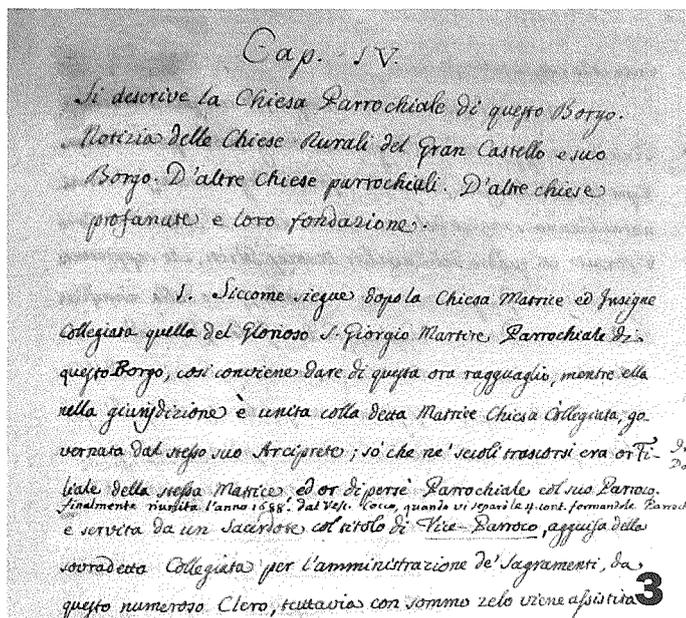 Cap. IV.
Si descrive la Chiesa Parrochiale di questo Borgo.
Notizia delle Chiese Rurali del Gran Castello e suo
Borgo. D'altre Chiese parrochiali. D'altre chiese
profanate e loro fondazione.
1. Siccome siegue dopo la Chiesa Matrice ed Insigne
Collegiata quella del Glorioso S. Giorgio Martire Parrochiale di
questo Borgo, così conviene dare di questa ora ragguaglio, mentre ella
nella giurisdizione è unita colla detta Matrice Chiesa Collegiata, go-
vernata dal stesso suo Arciprete; so' che ne' secoli trascorsi era or Fi-
liale della stessa Matrice ed or di persè Parrochiale col suo Parroco.
finalmente riunita l'anno 1688. dal Vesc. Cocco, quando vi separò le 4. cont. formandole Parroch
e servita da un Sacerdote col titolo di Vice-Parroco, agguisa della
sovradetta Collegiata per l'amministrazione de' Sagramenti, da
questo numeroso Clero, tuttavia con sommo zelo viene assistita
3